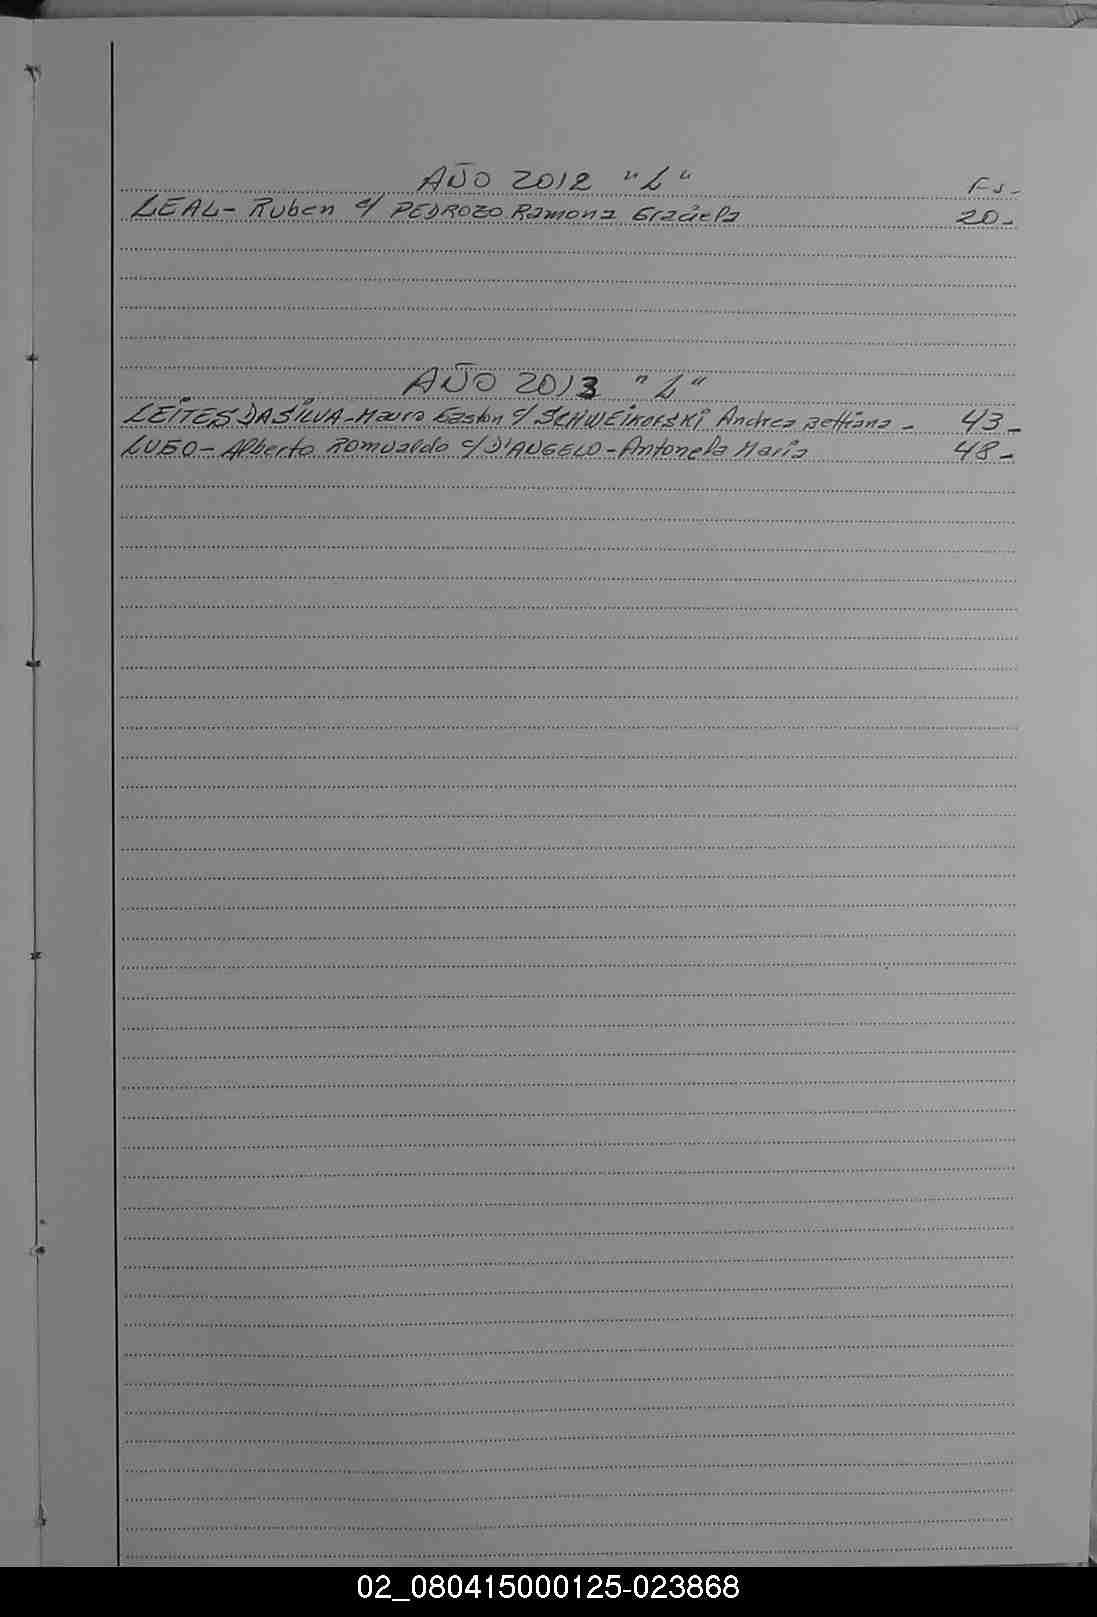 AÑO 2012 "L"
Fs.
LEAL - Ruben c/ PEDROZO Ramona Graciela 20-
AÑO 2013 "L"
LEITES DA SILVA - Mauro Gaston c/ Andrea Bettiana - 43-
LUGO - Alberto Romualdo c/ D'ANGELO - Antonela Maria 48-
02_080415000125-023868